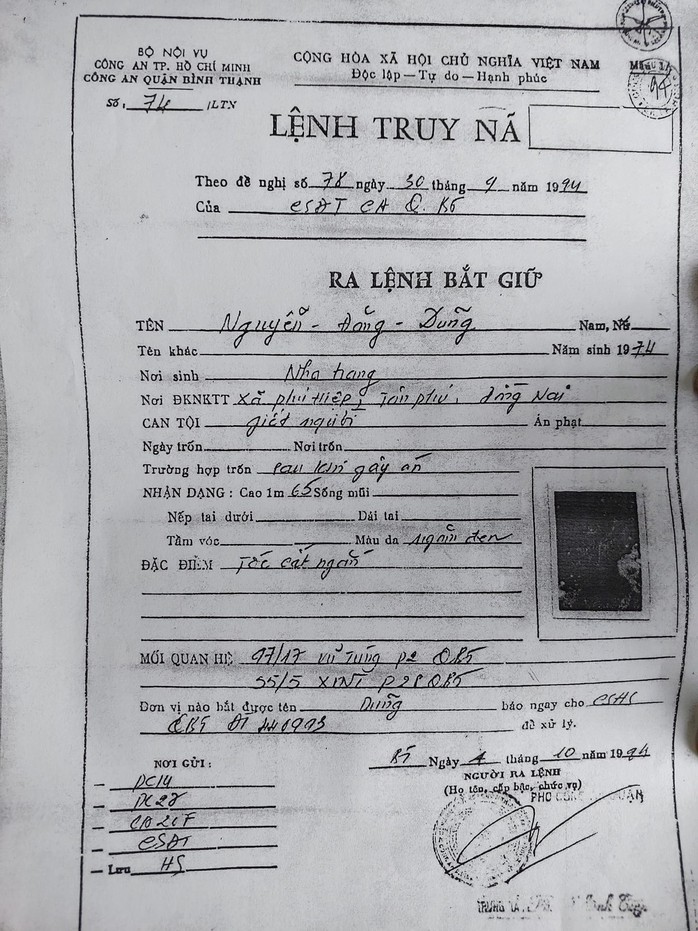 BỘ NỘI VỤ
CÔNG AN TP. HỒ CHÍ MINH
CÔNG AN QUẬN BÌNH THẠNH
Số, 74 /LTN
CỘNG HÒA XÃ HỘI CHỦ NGHĨA VIỆT NAM
Độc lập — Tự do — Hạnh phúc
LỆNH TRUY NÃ
Theo đề nghị số 78 ngày 30 tháng 9 năm 1994
Của CSĐT CA Q. BT
RA LỆNH BẮT GIỮ
TÊN Nguyễn - Đăng - Dũng Nam, Nữ
Tên khác Năm sinh 1974
Nơi sinh Nha trang
Nơi ĐKNKTT Xã phú Hiệp, Tân phú, đồng Nai
CAN TỘI giết người Án phạt
Ngày trốn Nơi trốn
Trường hợp trốn sau khi gây án
NHẬN DẠNG : Cao 1m 65 Sống mũi
Nếp tai dưới Dái tai
Tầm vóc Màu da ngăm đen
ĐẶC ĐIỂM Tóc cắt ngắn
MỐI QUAN HỆ 97/17 Vũ Tùng P2 QBT
55/5 XVNT P21 QBT
Đơn vị nào bắt được tên Dũng báo ngay cho CSHS
QBT ĐT 440993 để xử lý.
BT Ngày 4 tháng 10 năm 1994
NƠI GỬI :
— PC14
— PC27
— CSĐT
— Lưu HS
NGƯỜI RA LỆNH
(Họ tên, cấp bậc, chức vụ)